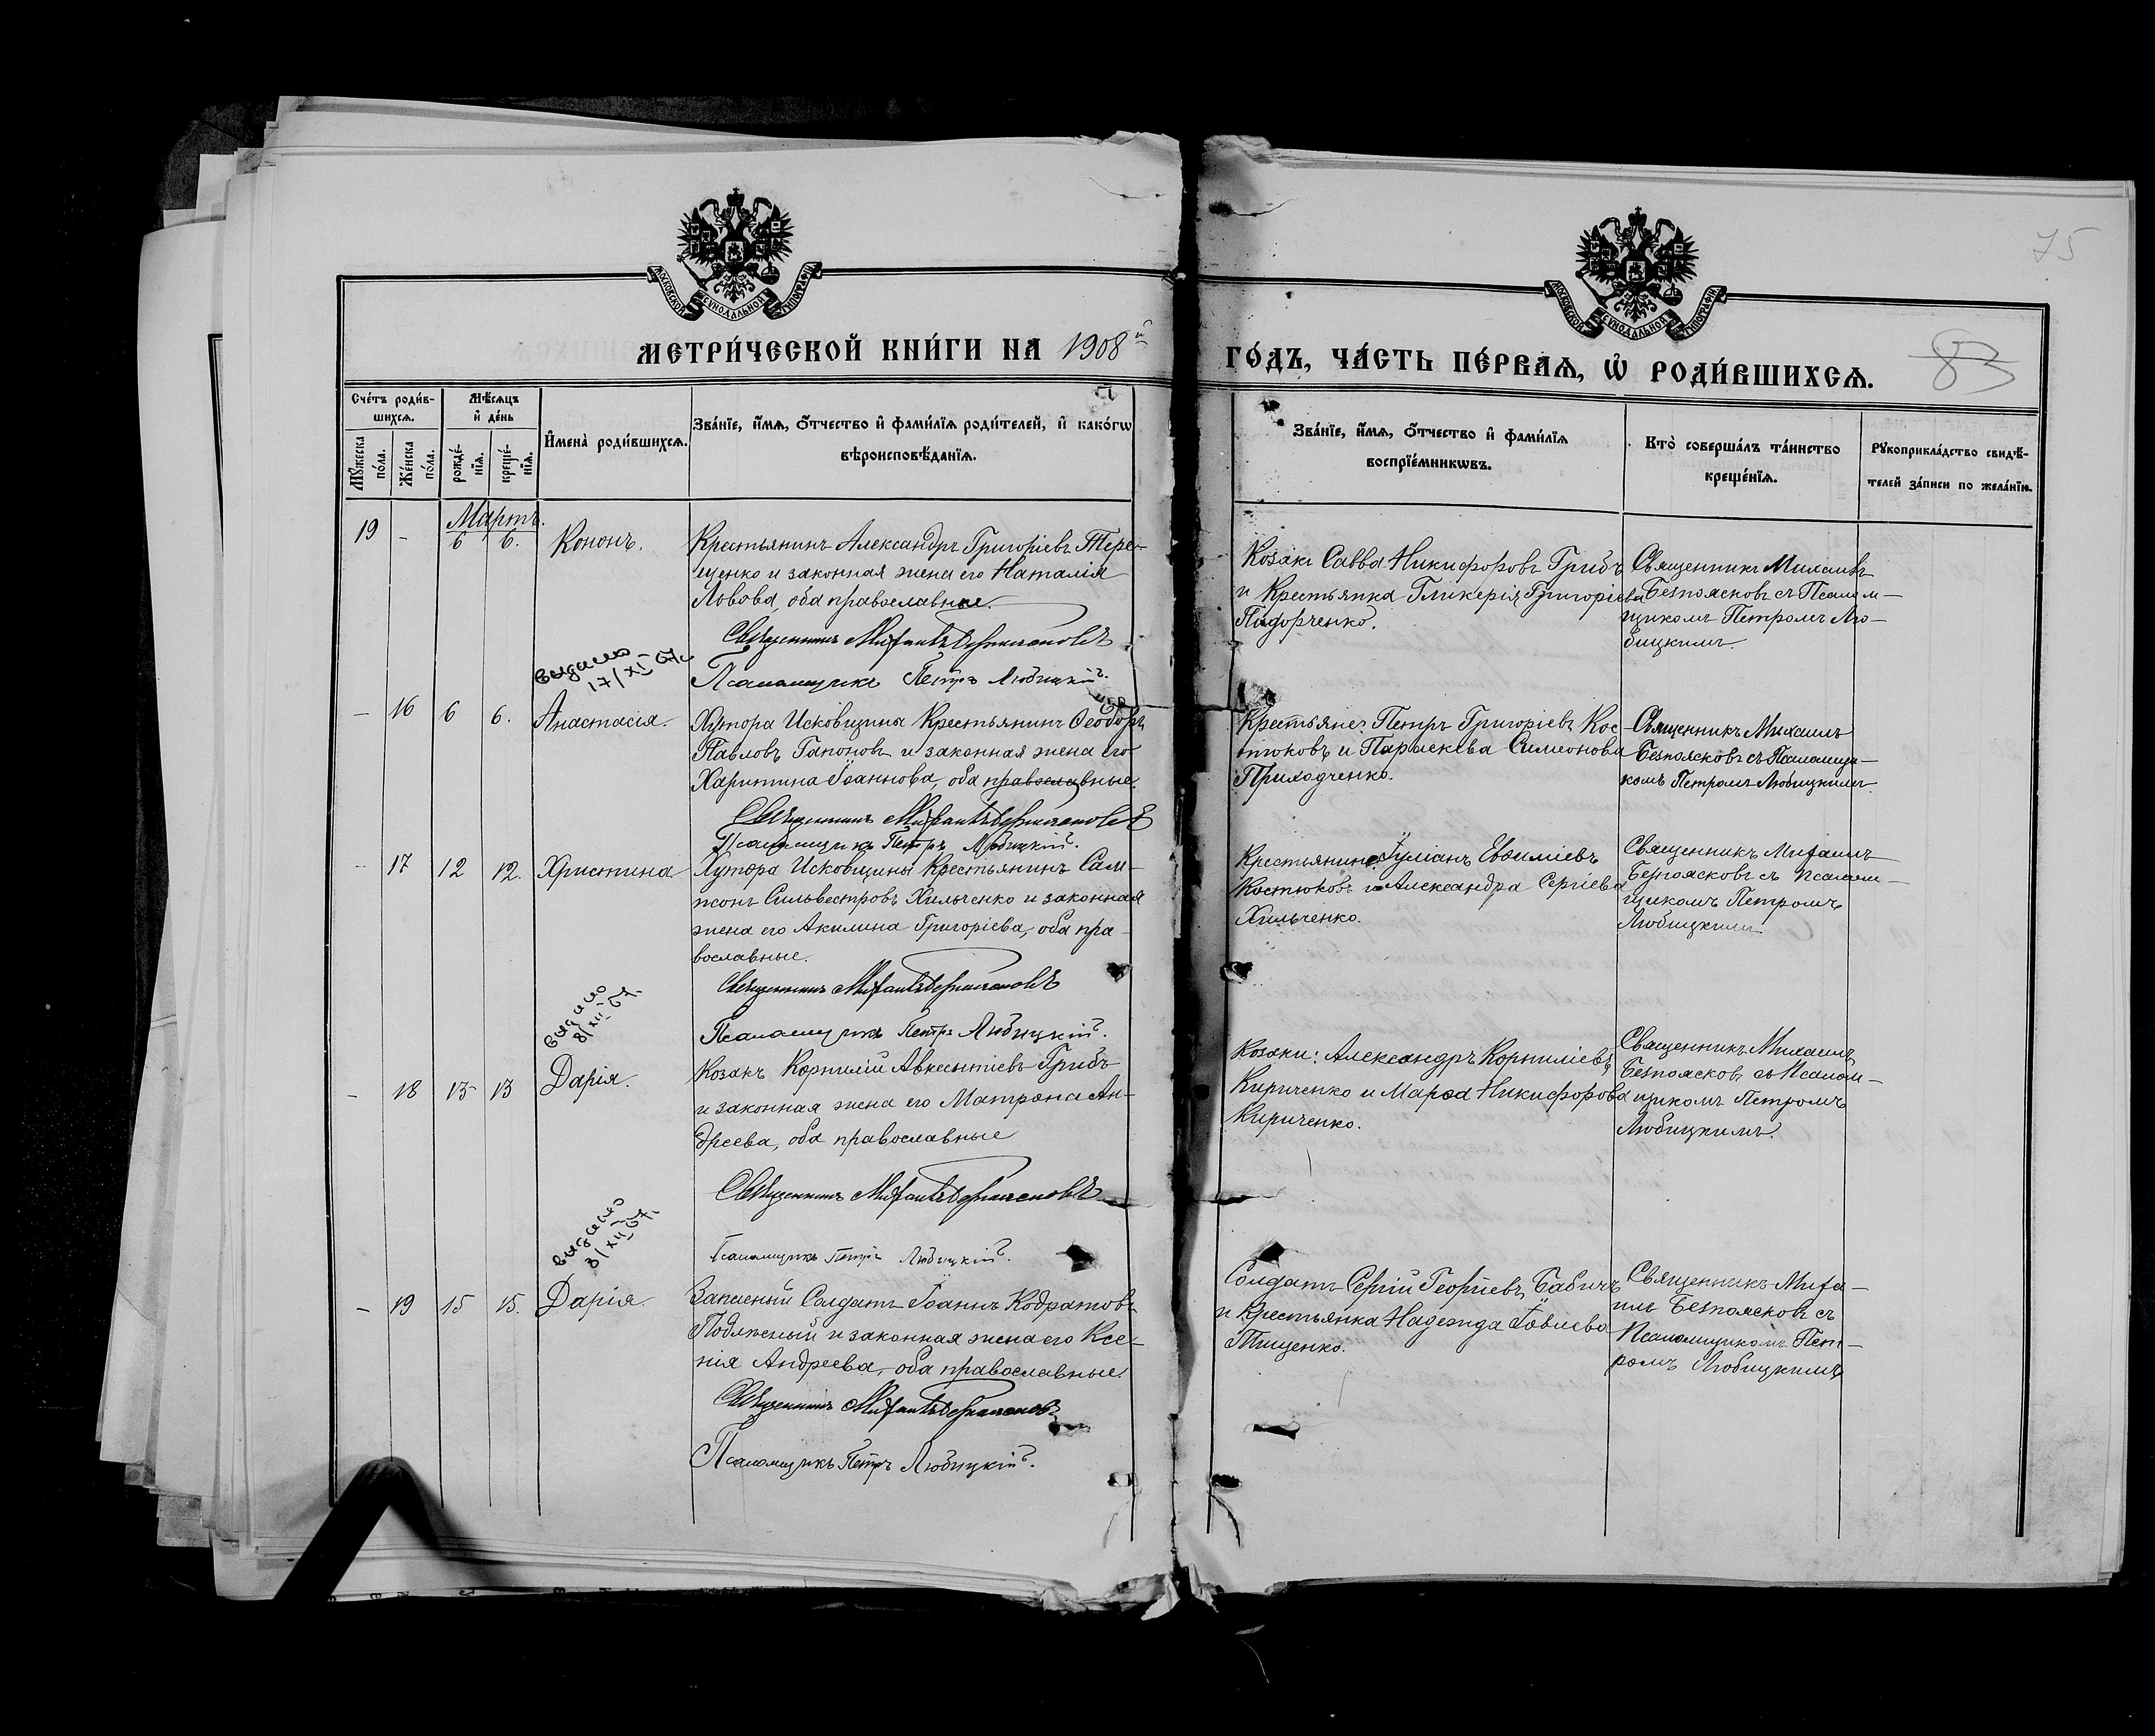 75
МОСКОВСКОЙ СѴНОДАЛЬНОЙ ТИПОГРАФІИ
МОСКОВСКОЙ СѴНОДАЛЬНОЙ ТИПОГРАФІИ
МЕТРИ́ЧЕСКОЙ КНИ́ГИ НА 1908й
ГО́ДЪ, ЧА́СТЬ ПЕ́РВАѦ, Ѡ҆ РОДИ́ВШИХСѦ.
83
Сче́тъ роди́в-
шихсѧ.
Мꙋ́жеска
по́ла.
Же́нска
по́ла.
Мѣ́сѧцъ
и҆ де́нь
рожде́-
нїѧ.
креще́-
нїѧ.
И҆мена̀ роди́вшихсѧ.
Зва́нїе, и҆́мѧ, ѻ҆́тчество и҆ фами́лїѧ роди́телей, и҆ како́гѡ
вѣроисповѣ́данїѧ.
Зва́нїе, и҆́мѧ, ѻ҆́тчество и҆ фами́лїѧ
воспрїе́мникѡвъ.
Кто̀ соверша́лъ та́инство
креще́нїѧ.
Рꙋкоприкла́дство свидѣ́-
телей за́писи по жела́нїю.
Мартъ.
19 - 6 6. Кононъ.
Крестьянинъ Александръ Григоріевъ Тере-
щенко и законная жена его Наталія
Львова, оба православные.
Священникъ Михаилъ Безпоясковъ
Псаломщикъ Петръ Любицкій.
Козакъ Савва Никифоровъ Грибъ
и Крестьянка Гликерія Григоріева
Подорченко.
Священникъ Михаилъ
Безпоясковъ съ Псалом-
щикомъ Петромъ Лю-
бицкимъ.
выдано
17/XI-67г.
- 16 6 6. Анастасія.
Хутора Исковщины Крестьянинъ Ѳеодоръ
Павловъ Гапоновъ и законная жена его
Харитина Іоаннова, оба православные.
Священникъ Михаилъ Безпоясковъ
Псаломщикъ Петръ Любицкій.
Крестьяне: Петръ Григоріевъ Кос-
тюковъ и Параскева Симеонова
Приходченко.
Священникъ Михаилъ
Безпоясковъ съ Псаломщи-
комъ Петромъ Любицкимъ.
- 17 12 12. Христина
Хутора Исковщины Крестьянинъ Сам-
псонъ Сильвестровъ Хильченко и законная
жена его Акилина Григоріева, оба пра-
вославные.
Священникъ Михаилъ Безпоясковъ
Псаломщикъ Петръ Любицкій.
Крестьяние: Іуліанъ Евѳиміевъ
Костюковъ и Александра Сергіева
Хильченко.
Священникъ Михаилъ
Безпоясковъ съ Псалом-
щикомъ Петромъ
Любицкимъ
выдано
8/XII-67.
- 18 13 13 Дарія.
Козакъ Корнилій Авксентіевъ Грибъ
и законная жена его Матрона Ан-
дреева, оба православные
Священникъ Михаилъ Безпоясковъ
Псаломщикъ Петръ Любицкій.
Козаки: Александръ Корниліевъ
Кириченко и Марѳа Никифорова
Кириченко.
Священникъ Михаилъ
Безпоясковъ съ Псалом-
щикомъ Петромъ
Любицкимъ.
выдано
8/XII-67.
- 19 15 15. Дарія.
Запасный Солдатъ Іоаннъ Кодратовъ
и законная жена его Ксе-
нія Андреева, оба православные.
Священникъ Михаилъ Безпоясковъ
Псаломщикъ Петръ Любицкій.
Солдатъ Сергій Георгіевъ Бабичъ
и Крестьянка Надежда Іовлева
Тищенко.
Священникъ Миха-
илъ Безпоясковъ съ
Псаломщикомъ Пет-
ромъ Любицкимъ